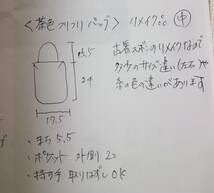 〈茶色フリフリバッグ〉 リメイク㏄ ㊥
13.5
24
17.5
古着ズボンのリメイクなので
多少のサイズ違い(左右)や
糸の色の違いがあります
・まち 5.5
・ポケット 外側 2コ
・持ち手 取りはずしOK